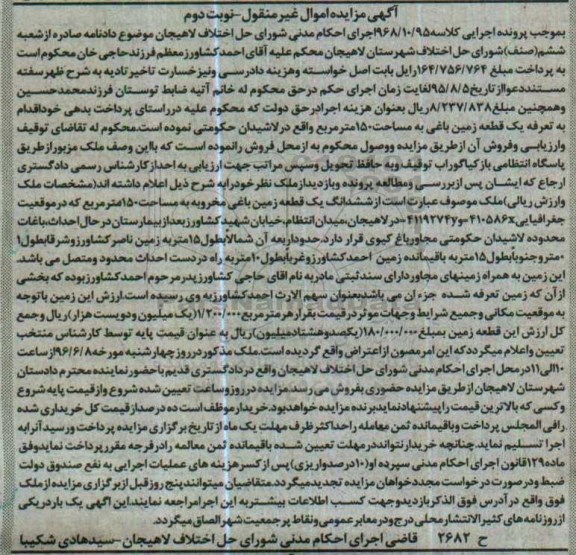 آگهی مزایده اموال غیر منقول-نوبت دوم
بموجب پرونده اجرایی کلاسه۹۶۸/۱۰/۹۵اجرای احکام مدنی شورای حل اختلاف لاهیجان موضوع دادنامه صادره از شعبه
ششم(صنف)شورای حل اختلاف شهرستان لاهیجان محکم علیه آقای احمدکشاورزمعظم فرزندحاجی خان محکوم است
به پرداخت مبلغ ۱۶۴/۷۵۶/۷۶۴رایل بابت اصل خواسته وهزینه دادرسی ونیز خسارت تاخیر تادیه به شرح ظهر سفته
مستنددعوااز تاریخ ۹۵/۸/۵لغایت زمان اجرای حکم درحق محکوم له خانم آتیه ضابط توستان فرزندمحمدحسین
وهمچنین مبلغ ۸/۲۳۷/۸۳۸ریال بعنوان هزینه اجرادرحق دولت که محکوم علیه درراستای پرداخت بدهی خوداقدام
به تعرفه یک قطعه زمین باغی به مساحت۱۵۰مترمربع واقع در لاشیدان حکومتی نموده است.محکوم له تقاضای توقیف
وارزیابی وفروش آن ازطریق مزایده ووصول محکوم به ازمحل فروش رانموده است که بااین وصف ملک مزبورازطریق
پاسگاه انتظامی بازکیاگوراب توقیف وبه حافظ تحویل وسپس مراتب جهت ارزیابی به احداز کارشناس رسمی دادگستری
ارجاع که ایشان پس ازبررسی ومطالعه پرونده وبازدیدازملک نظر خودرابه شرح ذیل اعلام داشته اند(مشخصات ملک
وارزش ریالی)ملک موصوف عبارت است ازششدانگ یک قطعه زمین باغی مخروبه به مساحت۱۵۰مترمربع که درموقعیت
جغرافیایی۴۱۰۵۸۶x=و۴۱۱۹۲۷۴y=درلاهیجان،میدان انتظام،خیابان شهیدکشاورزبعدازبیمارستان درحال احداث،باغات
محدوده لاشیدان حکومتی مجاورباغ کیوی قرار دارد.حدوداربعه آن شمالابطول۱۵متربه زمین ناصرکشاورزوشرقابطول۱
۰متروجنوبابطول۱۵متربه باقیمانده زمین احمدکشاورزوغربابطول۱۰متربه راه دردست احداث محدود ومتصل می باشد.
این زمین به همراه زمینهای مجاوردارای سندثبتی مادربه نام اقای حاجی کشاورزپدرمرحوم احمدکشاورزبوده که بخشی
ازآن که زمین تعرفه شده جزءآن می باشدبعنوان سهم الارث احمدکشاورزبه وی رسیده است.ارزش این زمین باتوجه
به موقعیت مکانی وجمیع شرایط وجهات موثردرقیمت بقرارهرمترمربع۱/۲۰۰/۰۰۰(یک میلیون ودویست هزار)ریال وجمع
کل ارزش این قطعه زمین بمبلغ۱۸۰/۰۰۰/۰۰۰(یکصدوهشتادمیلیون)ریال به عنوان قیمت پایه توسط کارشناس منتخب
تعیین واعلام میگرددکه این امرمصون ازاعتراض واقع گردیده است.ملک مذکوردرروزچهارشنبه مورخه۹۶/۶/۸ازساعت
۱۰الی۱۱درمحل اجرای احکام مدنی شورای حل اختلاف لاهیجان واقع دردادگستری قدیم باحضورنماینده محترم دادستان
شهرستان لاهیجان ازطریق مزایده حضوری بفروش می رسد.مزایده درروزوساعت تعیین شده شروع وازقیمت پایه شروع
وکسی که بالاترین قیمت راپیشنهادنمایدبرنده مزایده خواهدبود.خریدارموظف است ده درصدازقیمت کل خریداری شده
رافی المجلس پرداخت وباقیمانده ثمن معامله راحداکثرظرف مهلت یک ماه ازتاریخ برگزاری مزایده پرداخت ورسیدآنرابه
اجرا تسلیم نماید.چنانچه خریدارنتوانددرمهلت تعیین شده باقیمانده ثمن معالمه رادرفرجه مقررپرداخت نمایدوفق
ماده۱۲۹قانون اجرای احکام مدنی سپرده او(۱۰درصدواریزی)پس ازکسرهزینه های عملیات اجرایی به نفع صندوق دولت
ضبط ودرصورت درخواست مجددخواهان مزایده تجدیدمیگردد.متقاضیان میتوانندپنج روزقبل ازبرگزاری مزایده ازملک
فوق واقع درآدرس فوق الذکربازدیدوجهت کسب اطلاعات بیشتربه این اجرامراجعه نمایند.این آگهی یک باردریکی
ازروزنامه های کثیرالانتشارمحلی درج ودرمعابرعمومی ونقاط پرجمعیت شهرالصاق میگردد.
ح ۲۶۸۲ قاضی اجرای احکام مدنی شورای حل اختلاف لاهیجان -سیدهادی شکیبا